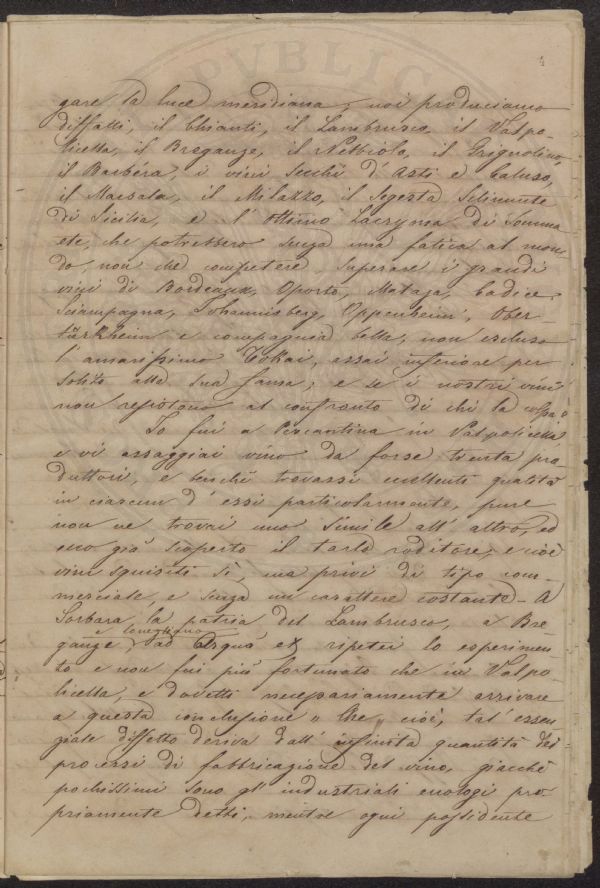 4
gare la luce meridiana, noi produciamo
diffatti, il Chianti, il Lambrusco, il Valpo-
licella, il Breganze, il Nebbiolo, il Grignolino,
il Barbéra, i vini secchi d'Asti e Caluso,
il Marsala, il Milazzo, il Segesta Selinunte
di Sicilia, e l'ottimo Lacryma di Somma
etc, che potrebbero senza una fatica al mon-
do, non che competere, superare i grandi
vini di Bordeaux, Oporto, Malaga, Cadice,
Sciampagna, Iohannisberg, Oppenheim, Ober
türkheim e compagnia bella, non escluso
l'amarissimo Tokai, assai inferiore per
solito alla sua fama; e se i nostri vini
non resistono al confronto di chi la colpa?
Io fui a Pescantina in Valpolicella
e vi assaggiai vino da forse trenta pro-
duttori, e benchè trovassi eccellenti qualità
in ciascun d'essi particolarmente, pure
non ne trovai uno simile all'altro, ed
ecco già scoperto il tarlo roditore, e cioè
vini squisiti sì, ma privi di tipo com-
merciale, e senza un carattere costante - A
Sorbara la patria del Lambrusco, a Bre
e Conegliano
ganze, ad Arquà ripetei lo esperimen
to e non fui più fortunato che in Valpo-
licella, e dovetti necessariamente arrivare
a questa conclusione "Che" cioè, tal'essen
ziale diffetto deriva dall'infinita quantità dei
processi di fabbricazione del vino, giacchè
pochissimi sono gl'industriali enologi pro
priamente detti, mentre ogni possidente
PVBLIC